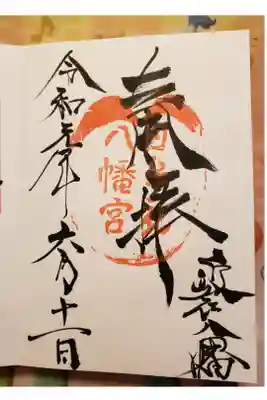 奉拝
八幡
八幡宮
令和元年六月十一日